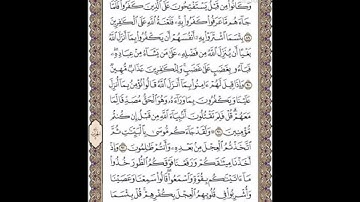 وَكَانُوا۟ مِن قَبْلُ يَسْتَفْتِحُونَ عَلَى ٱلَّذِينَ كَفَرُوا۟ فَلَمَّا
جَآءَهُم مَّا عَرَفُوا۟ كَفَرُوا۟ بِهِۦ ۚ فَلَعْنَةُ ٱللَّهِ عَلَى ٱلْكَٰفِرِينَ
بِئْسَمَا ٱشْتَرَوْا۟ بِهِۦٓ أَنفُسَهُمْ أَن يَكْفُرُوا۟ بِمَآ أَنزَلَ ٱللَّهُ
بَغْيًا أَن يُنَزِّلَ ٱللَّهُ مِن فَضْلِهِۦ عَلَىٰ مَن يَشَآءُ مِنْ عِبَادِهِۦ ۖ
فَبَآءُو بِغَضَبٍ عَلَىٰ غَضَبٍ ۚ وَلِلْكَٰفِرِينَ عَذَابٌ مُّهِينٌ
وَإِذَا قِيلَ لَهُمْ ءَامِنُوا۟ بِمَآ أَنزَلَ ٱللَّهُ قَالُوا۟ نُؤْمِنُ بِمَآ أُنزِلَ
عَلَيْنَا وَيَكْفُرُونَ بِمَا وَرَآءَهُۥ وَهُوَ ٱلْحَقُّ مُصَدِّقًا لِّمَا
مَعَهُمْ ۗ قُلْ فَلِمَ تَقْتُلُونَ أَنۢبِيَآءَ ٱللَّهِ مِن قَبْلُ إِن كُنتُم
مُّؤْمِنِينَ وَلَقَدْ جَآءَكُم مُّوسَىٰ بِٱلْبَيِّنَٰتِ ثُمَّ
ٱتَّخَذْتُمُ ٱلْعِجْلَ مِنۢ بَعْدِهِۦ وَأَنتُمْ ظَٰلِمُونَ وَإِذْ
أَخَذْنَا مِيثَٰقَكُمْ وَرَفَعْنَا فَوْقَكُمُ ٱلطُّورَ خُذُوا۟
مَآ ءَاتَيْنَٰكُم بِقُوَّةٍ وَٱسْمَعُوا۟ ۖ قَالُوا۟ سَمِعْنَا وَعَصَيْنَا
وَأُشْرِبُوا۟ فِى قُلُوبِهِمُ ٱلْعِجْلَ بِكُفْرِهِمْ ۚ قُلْ بِئْسَمَا